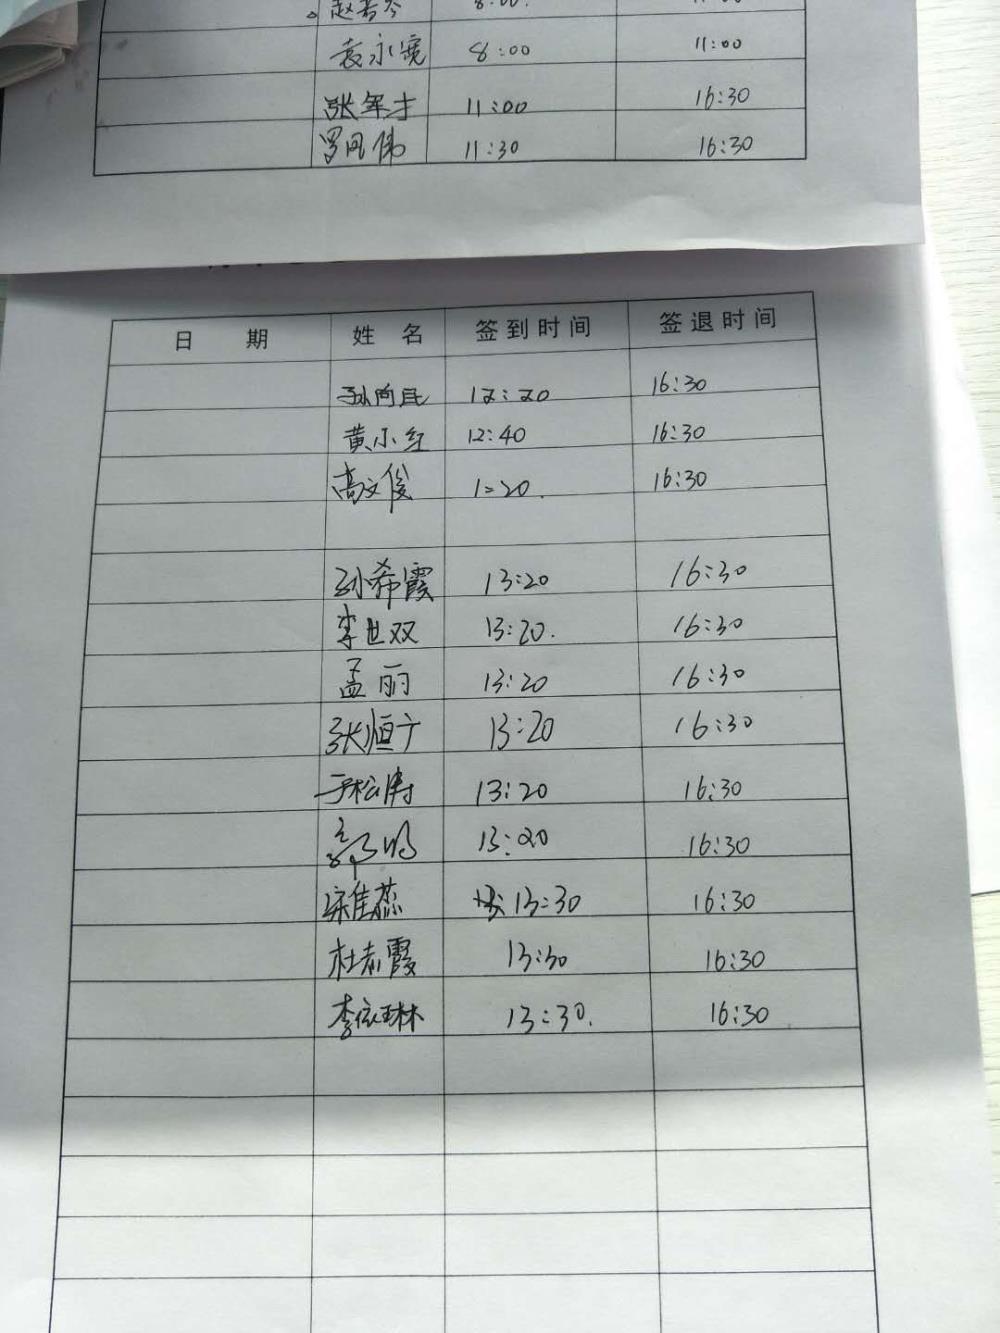 8:00.
袁永宽 8:00 11:00
张军才 11:00 16:30
罗凤伟 11:30 16:30
日 期 姓 名 签到时间 签退时间
孙向民 12:20 16:30
黄小红 12:40 16:30
高文俊 1:20. 16:30
孙希霞 13:20 16:30
李世双 13:20. 16:30
孟丽 13:20 16:30
张恒广 13:20 16:30
于松涛 13:20 16:30
13:20 16:30
宋佳蕊 13:30 16:30
杜志霞 13:30 16:30
李依琳 13:30. 16:30